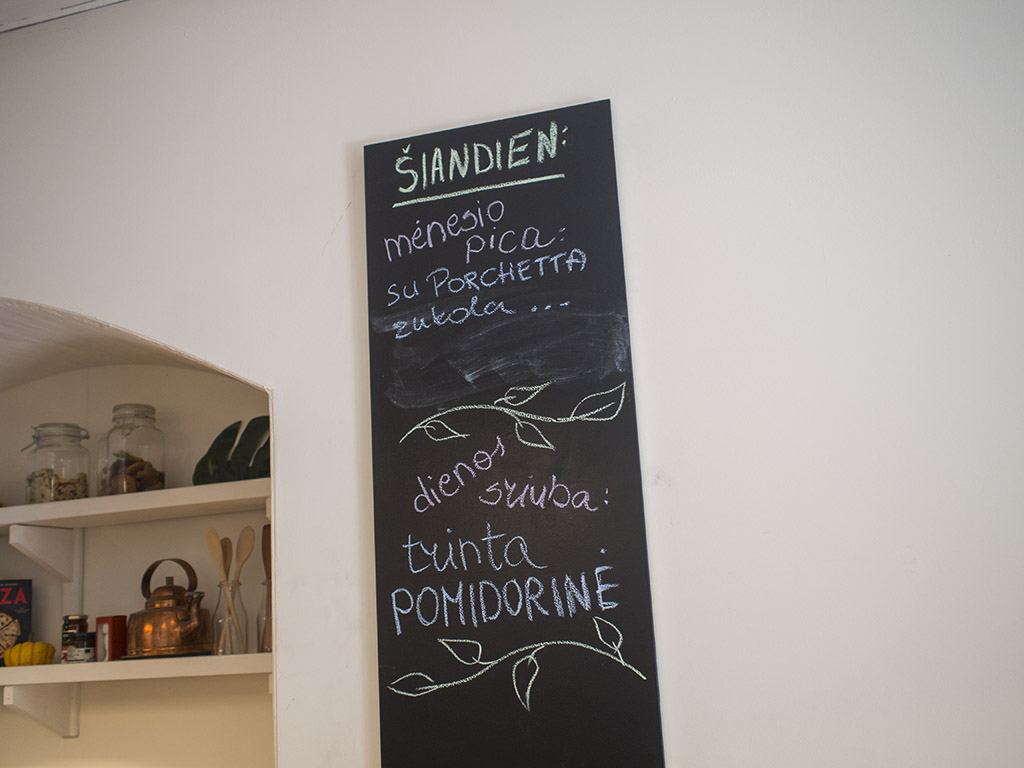 ŠIANDIEN:
mėnesio
pica:
su PORCHETTA
rukola ...
dienos
sriuba:
trinta
POMIDORINĖ
ZA